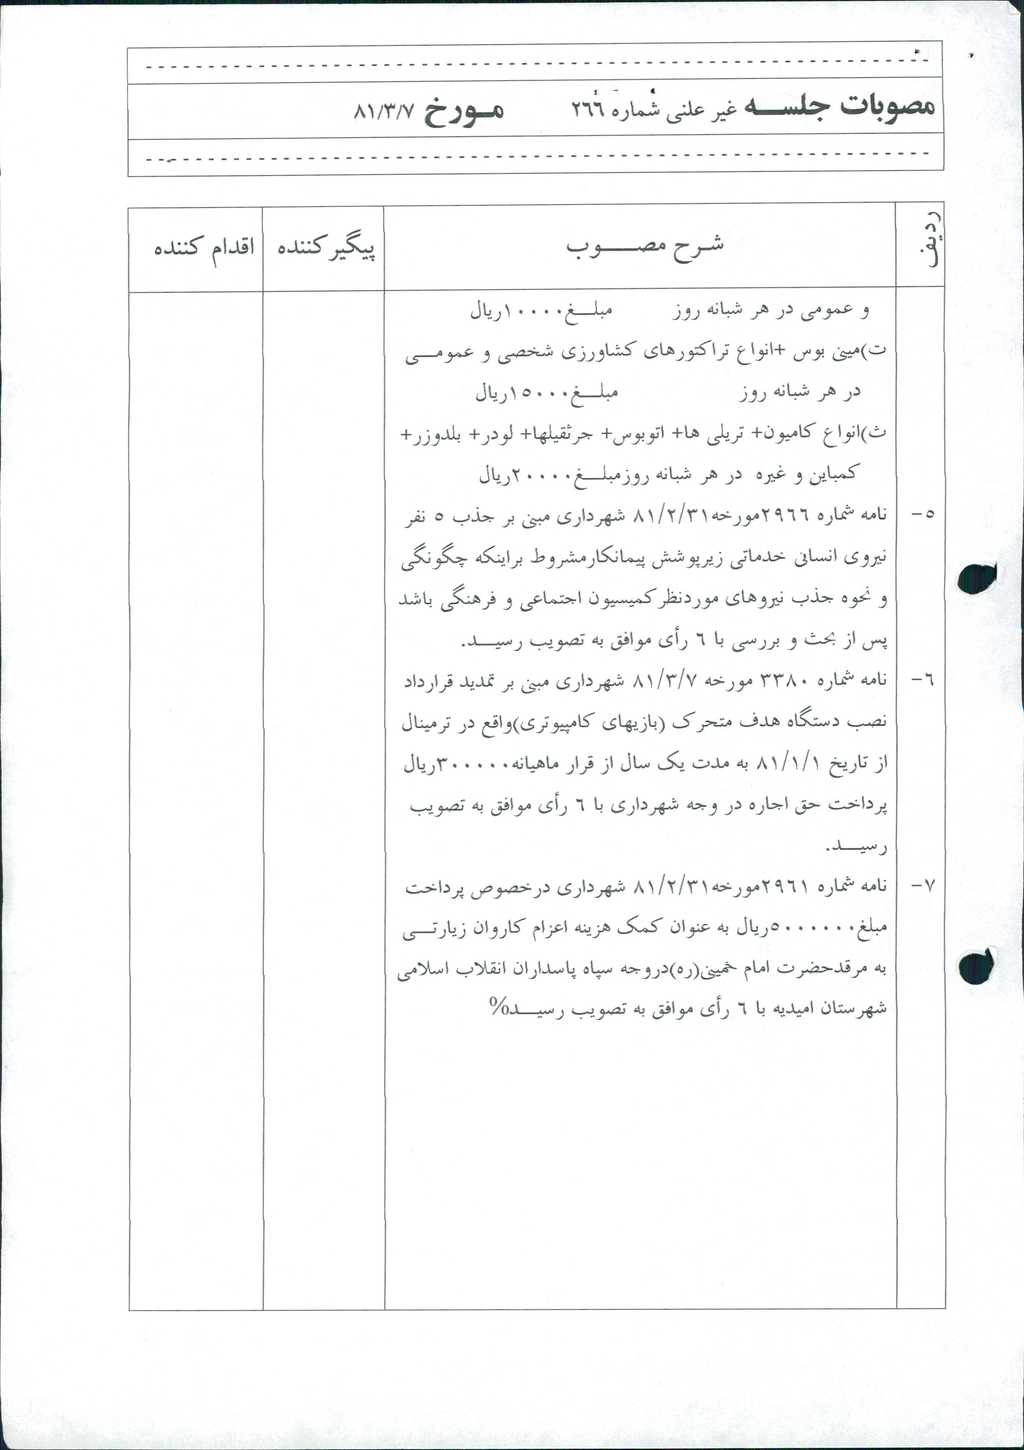 مصوبات جلســـه غیر علنی شماره ۲۶۶ مـورخ ۸۱/۳/۷
ردیف شـرح مصـــوب پیگیرکننده اقدام کننده
و عمومی در هر شبانه روز مبلــغ۱۰۰۰۰ریال
ت)مینی بوس +انواع تراکتورهای کشاورزی شخصی و عمومـــی
در هر شبانه روز مبلــغ۱۵۰۰۰ریال
ث)انواع کامیون+ تریلی ها+ اتوبوس+ جرثقیلها+ لودر+ بلدوزر+
کمباین و غیره در هر شبانه روزمبلــغ۲۰۰۰۰ریال
۵- نامه شماره ۲۹۶۶مورخه۸۱/۲/۳۱ شهرداری مبنی بر جذب ۵ نفر
نیروی انسانی خدماتی زیرپوشش پیمانکارمشروط براینکه چگونگی
و نحوه جذب نیروهای موردنظرکمیسیون اجتماعی و فرهنگی باشد
پس از بحث و بررسی با ۶ رأی موافق به تصویب رسیـــد.
۶- نامه شماره ۳۳۸۰ مورخه ۸۱/۳/۷ شهرداری مبنی بر تمدید قرارداد
نصب دستگاه هدف متحرک (بازیهای کامپیوتری)واقع در ترمینال
از تاریخ ۸۱/۱/۱ به مدت یک سال از قرار ماهیانه۳۰۰۰۰۰ریال
پرداخت حق اجاره در وجه شهرداری با ۶ رأی موافق به تصویب
رسیـــد.
۷- نامه شماره ۲۹۶۱مورخه۸۱/۲/۳۱ شهرداری درخصوص پرداخت
مبلغ۵۰۰۰۰۰۰ریال به عنوان کمک هزینه اعزام کاروان زیارتـــی
به مرقدحضرت امام خمینی(ره)دروجه سپاه پاسداران انقلاب اسلامی
شهرستان امیدیه با ۶ رأی موافق به تصویب رسیـــد%